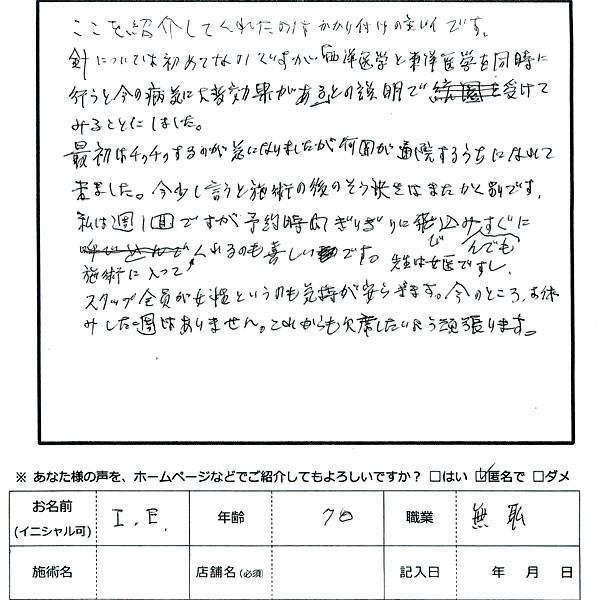 ここを紹介してくれたのはかかり付けの先生です。
針については初めてなのですが「西洋医学と東洋医学を同時に
行うと今の病気に大変効果がある」との説明で を受けて
みることにしました。
最初はチクチクするのが気になりましたが何回か通院するうちになれて
きました。今少し言うと施術の後のそう快さはまたかく別です。
私は週1回ですが予約時間ぎりぎりに飛び込んでもすぐに
施術に入ってくれるのも喜しいです。先生は女医ですし、
スタッフ全員が女性というのも気持が安らぎます。今のところ、お休
みした週はありません。これからも欠席しないよう頑張ります。
※ あなた様の声を、ホームページなどでご紹介してもよろしいですか? □はい ☑匿名で □ダメ
お名前 (イニシャル可) I.E. 年齢 70 職業 無職
施術名 店舗名(必須) 記入日 年 月 日